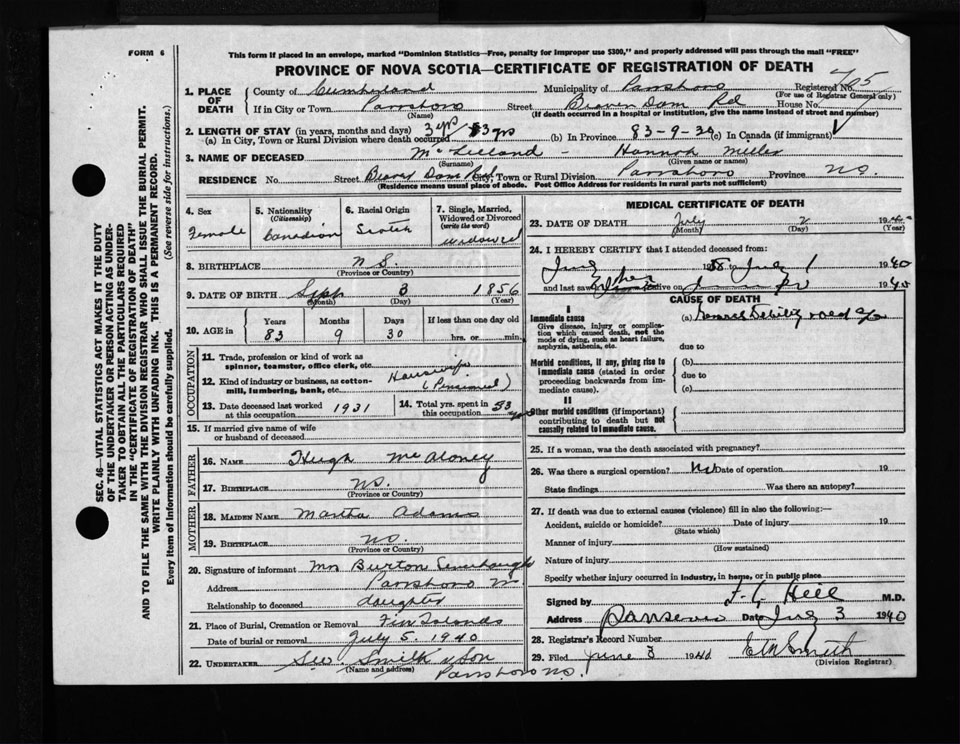 FORM 6
This form if placed in an envelope, marked "Dominion Statistics—Free, penalty for improper use $300," and properly addressed will pass through the mail "FREE"
PROVINCE OF NOVA SCOTIA—CERTIFICATE OF REGISTRATION OF DEATH
SEC. 46—VITAL STATISTICS ACT MAKES IT THE DUTY
OF THE UNDERTAKER OR PERSON ACTING AS UNDER-
TAKER TO OBTAIN ALL THE PARTICULARS REQUIRED
IN THE "CERTIFICATE OF REGISTRATION OF DEATH"
AND TO FILE THE SAME WITH THE DIVISION REGISTRAR WHO SHALL ISSUE THE BURIAL PERMIT.
WRITE PLAINLY WITH UNFADING INK. THIS IS A PERMANENT RECORD.
Every item of information should be carefully supplied. (See reverse side for instructions.)
1. PLACE OF DEATH
County of Cumberland Municipality of Parrsboro Registered No. 705
(For use of Registrar General only)
If in City or Town Parrsboro Street Beaver Dam Rd House No.
(Name) (If death occurred in a hospital or institution, give the name instead of street and number)
2. LENGTH OF STAY (in years, months and days)
(a) In City, Town or Rural Division where death occurred 3 yrs (b) In Province 83-9-30 (c) In Canada (if immigrant)
3. NAME OF DECEASED McLelland - Hannah Miller
(Surname) (Given name or names)
RESIDENCE No. Street Beaver Dam Rd City, Town or Rural Division Parrsboro Province N.S.
(Residence means usual place of abode. Post Office Address for residents in rural parts not sufficient)
4. Sex
Female
5. Nationality
(Citizenship)
Canadian
6. Racial Origin
Scotch
7. Single, Married,
Widowed or Divorced
(write the word)
widowed
8. BIRTHPLACE N.S.
(Province or Country)
9. DATE OF BIRTH Sept 3 1856
(Month) (Day) (Year)
10. AGE in
Years Months Days If less than one day old
83 9 30 hrs. or min.
OCCUPATION
11. Trade, profession or kind of work as
spinner, teamster, office clerk, etc. Housewife
12. Kind of industry or business, as cotton-
mill, lumbering, bank, etc. (Pensioned)
13. Date deceased last worked
at this occupation 1931
14. Total yrs. spent in
this occupation 53 yrs
15. If married give name of wife
or husband of deceased
FATHER
16. NAME Hugh McAloney
17. BIRTHPLACE N.S.
(Province or Country)
MOTHER
18. MAIDEN NAME Martha Adams
19. BIRTHPLACE N.S.
(Province or Country)
20. Signature of informant Mrs Burton
Address Parrsboro N.S.
Relationship to deceased daughter
21. Place of Burial, Cremation or Removal Five Islands
Date of burial or removal July 5. 1940
22. UNDERTAKER Smith & Son
(Name and address) Parrsboro N.S.
MEDICAL CERTIFICATE OF DEATH
23. DATE OF DEATH July 2 1940
(Month) (Day) (Year)
24. I HEREBY CERTIFY that I attended deceased from:
July 1 1940
and last saw her alive on 1940
CAUSE OF DEATH
I
Immediate cause
Give disease, injury or complica-
tion which caused death, not the
mode of dying, such as heart failure,
asphyxia, asthenia, etc.
(a) Debility & old age
due to
Morbid conditions, if any, giving rise to
immediate cause (stated in order
proceeding backwards from im-
mediate cause).
(b)
due to
(c)
II
Other morbid conditions (if important)
contributing to death but not
causally related to immediate cause.
25. If a woman, was the death associated with pregnancy?
26. Was there a surgical operation? No Date of operation 19
State findings Was there an autopsy?
27. If death was due to external causes (violence) fill in also the following:—
Accident, suicide or homicide? Date of injury 19
(State which)
Manner of injury
(How sustained)
Nature of injury
Specify whether injury occurred in industry, in home, or in public place
Signed by Hill M.D.
Address Date 3 1940
28. Registrar's Record Number
29. Filed June 3 1940 Smith
(Division Registrar)